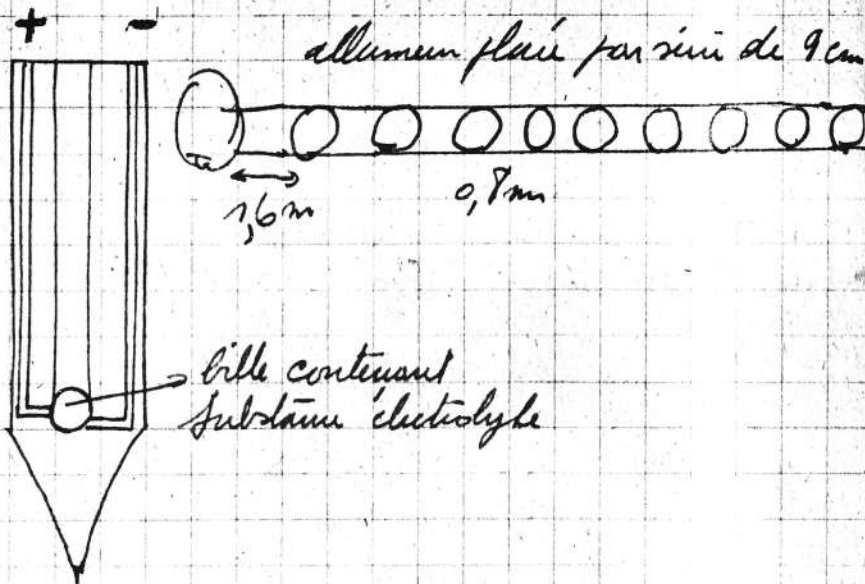 + -
allumeur placé par série de 9 cm
1,6 m
0,8 m
bille contenant
substance électrolyte